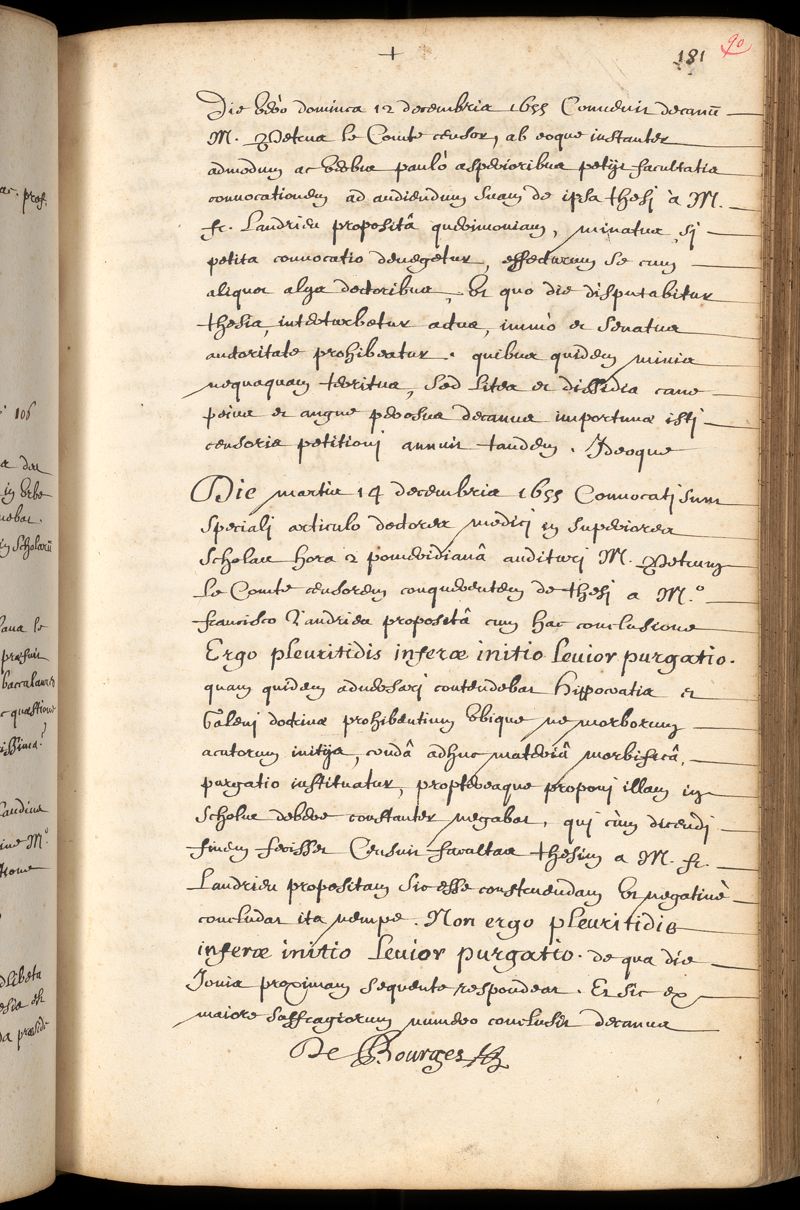 +
181
90
Die vero dominica 12 decembris 1655 Convenit decanū
M. Petrus le Comte censor, ab eoque instanter
admodum ac verbis paulò asperioribus petijt facultatis
convocationem ad audiendum suam de ipsa thesi à M.
fr. Landrieu propositâ querimoniam, minatus si
petita convocatio denegetur, effecturum se cum
aliquot alijs doctoribus, ut quo die disputabitur
thesis, interturbetur actus, immò et senatus
authoritate prohibeatur. quibus quidem minis
nequaquam territus, sed lites et dissidia cane
pejus et angue perosus decanus importunæ isti
censoris petitioni annuit tandem. Ideoque
Die martis 14 decembris 1655 Convocati sunt
speciali articulo doctores medici in superiores
scholas hora 2 pomeridianâ audituri M. Petrum
le Comte censorem conquerentem de thesi a M.º
francisco Landrieu propositâ cum hac conclusione
Ergo pleuritidis inferæ initio levior purgatio.
quam quidem adversari contendebat Hippocratis et
Galeni doctrinæ prohibentium ubique ne morborum
acutorum initijs, crudâ adhuc materiâ morbificâ,
purgatio instituatur, proptereaque proponi illam in
scholis debere constanter negabat, qui cùm dicendi
finem fecisset Censuit facultas thesim a M. fr.
Landrieu propositam sic esse constituendam ut negativè
concludat ita nempe. Non ergo pleuritidis
inferæ initio levior purgatio. de qua die
Jovis proximam sequente respondeat. Et sic ex
maiore suffragiorum numero conclusit decanus
De Bourges
ac. prof.
106
in verbo
nebat.
in scholarū
præfuit
baccalaureus
c quæstione
issima?
Landius
ine M.º